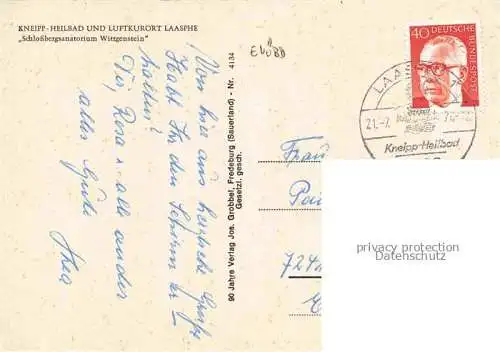 KNEIPP-HEILBAD UND LUFTKURORT LAASPHE
„Schloßbergsanatorium Wittgenstein"
Von hier aus herzliche Grüße
Habt Ihr den Schirm er-
halten?
Dir, Rosa u. alle anderen
alles Gute
Thea
90 Jahre Verlag Jos. Grobbel, Fredeburg (Sauerland) - Nr. 4134
Gesetzl. gesch.
40
DEUTSCHE
BUNDESPOST
LAA
21.-7.
Kneipp-Heilbad
Frau
724
privacy protection
Datenschutz